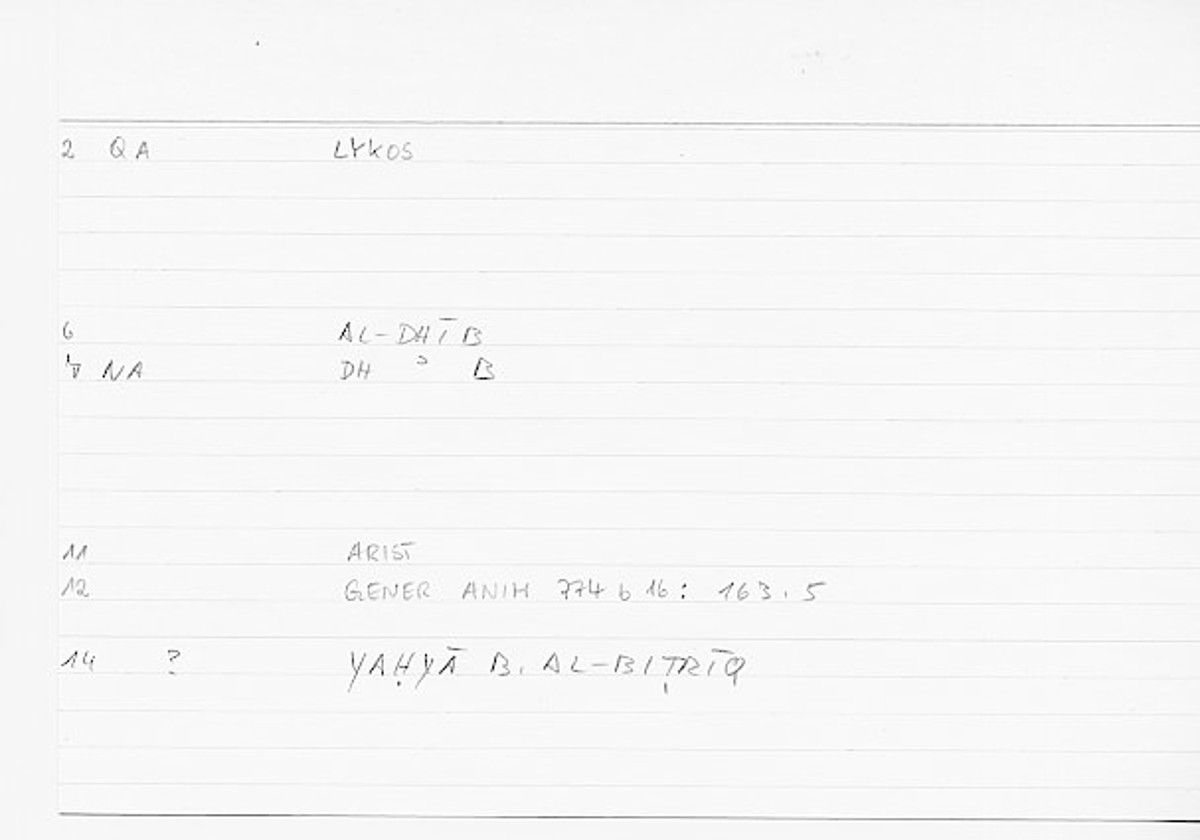 2 QA LYKOS
6 AL-DHĪB
7 NA DH ʾ B
11 ARIST
12 GENER ANIM 774 b 16: 163.5
14 ? YAḤYĀ B. AL-BIṬRĪQ